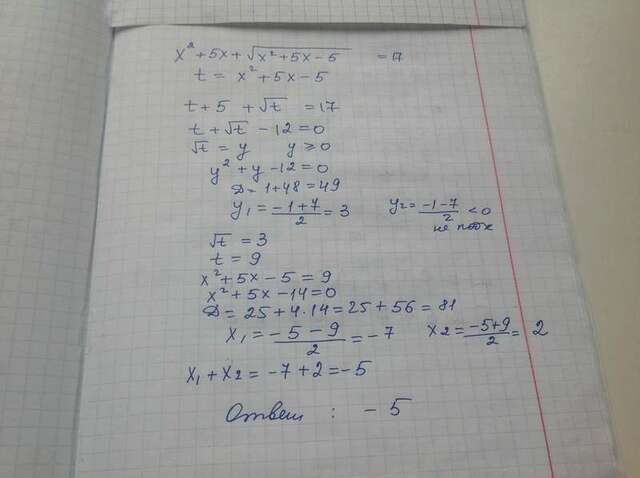 x² + 5x + √x² + 5x - 5 = 17
t = x² + 5x - 5
t + 5 + √t = 17
t + √t - 12 = 0
√t = y y ⩾ 0
y² + y - 12 = 0
D = 1 + 48 = 49
y₁ = (-1 + 7)/2 = 3 y₂ = (-1 - 7)/2 < 0
не подх
√t = 3
t = 9
x² + 5x - 5 = 9
x² + 5x - 14 = 0
D = 25 + 4·14 = 25 + 56 = 81
x₁ = (-5 - 9)/2 = -7 x₂ = (-5 + 9)/2 = 2
x₁ + x₂ = -7 + 2 = -5
Ответ : -5